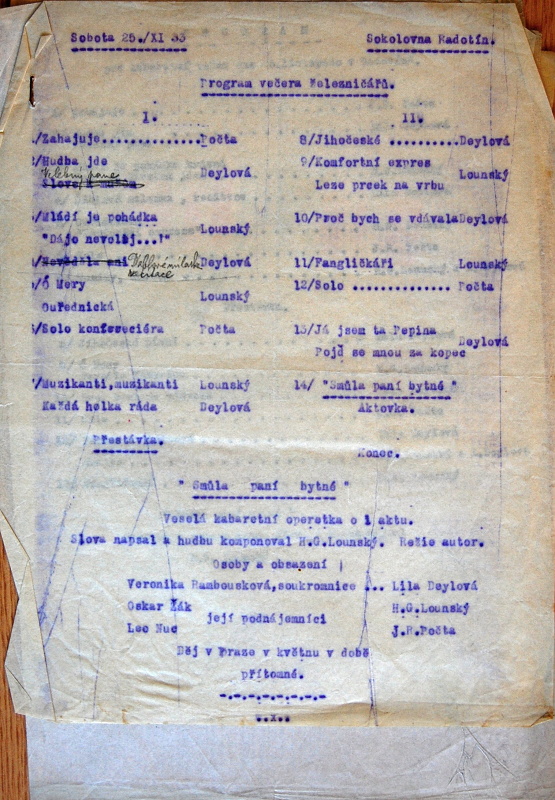 Sobota 25./XI 33
Sokolovna Radotín.
Program večera železničářů.
I.
./Zahajuje...............Počta
./Hudba jde
Velebný pane
Slovo, a
Deylová
./Mládí je pohádka
"Dájo nevolěj...!"
Lounský
./Nevěděla ani
recitace
Deylová
./Ó Mery
Ouřednická
Lounský
./Solo konferenciéra
Počta
./Muzikanti,muzikanti
Lounský
Každá holka ráda
Deylová
Přestávka.
II.
8/Jihočeské ..........Deylová
9/Komfortní expres
Leze prcek na vrbu
Lounský
10/Proč bych se vdávalaDeylová
11/Fangličkáři
Lounský
12/Solo ...............Počta
13/Já jsem ta Pepina
Pojď se mnou za kopec
Deylová
14/ "Smůla paní bytné "
Aktovka.
Konec.
" Smůla paní bytné "
Veselá kabaretní operetka o 1 aktu.
Slova napsal a hudbu komponoval H.G.Lounský. Režie autor.
Osoby a obsazení
Veronika Rambousková,soukromnice ... Lila Deylová
Oskar Žák
H.G.Lounský
její podnájemníci
Leo Nuc
J.R.Počta
Děj v Praze v květnu v době
přítomné.
-.-.-.-.-.-.-.-.-
..x..